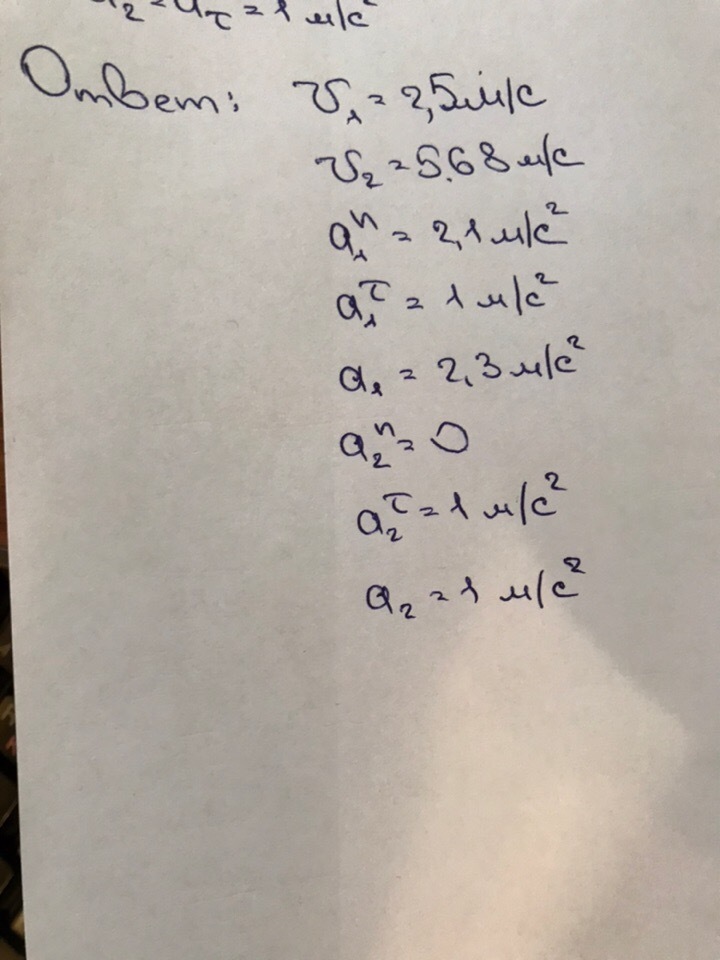 a₂ = a_τ = 1 м/с²
Ответ: υ₁ = 2,5 м/с
υ₂ = 5.68 м/с
a₁ⁿ = 2,1 м/с²
a₁^τ = 1 м/с²
a₁ = 2,3 м/с²
a₂ⁿ = 0
a₂^τ = 1 м/с²
a₂ = 1 м/с²